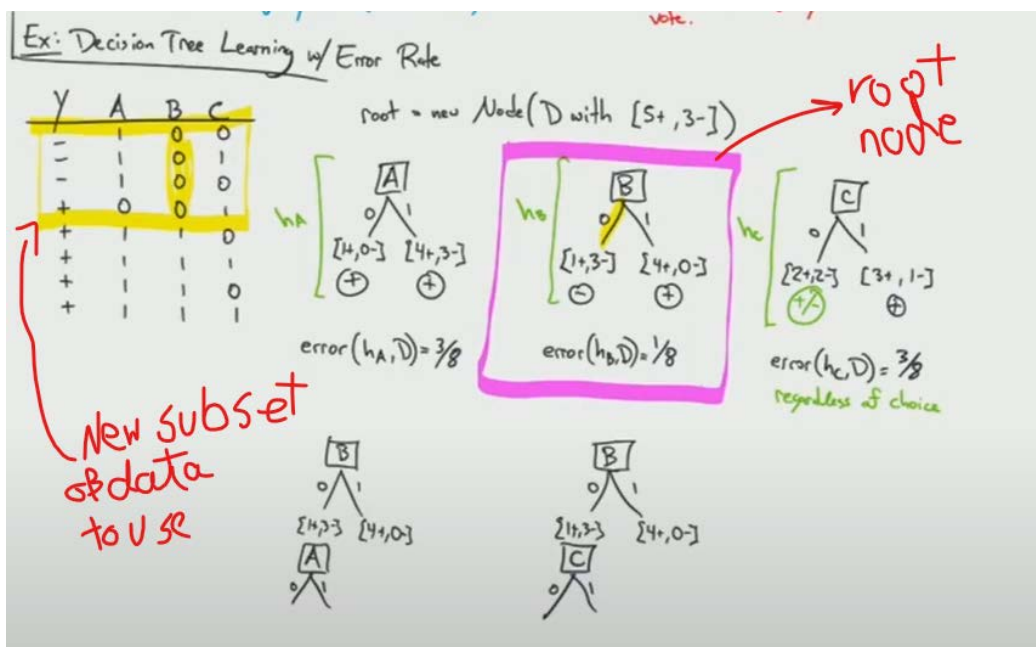 vote.
Ex: Decision Tree Learning w/ Error Rate
Y A B C
- 1 0 0
- 1 0 1
- 1 0 0
+ 0 0 1
+ 1 1 0
+ 1 1 1
+ 1 1 0
+ 1 1 1
root = new Node(D with [5+, 3-])
root
node
hA
A
0 1
[1+,0-] [4+,3-]
+ +
error(hA,D) = 3/8
hB
B
0 1
[1+,3-] [4+,0-]
- +
error(hB,D) = 1/8
hC
C
0 1
[2+,2-] [3+, 1-]
+/- +
error(hC,D) = 3/8
regardless of choice
New subset
of data
to use
B
0 1
[1+,3-] [4+,0-]
A
0 1
B
0 1
[1+,3-] [4+,0-]
C
0 1